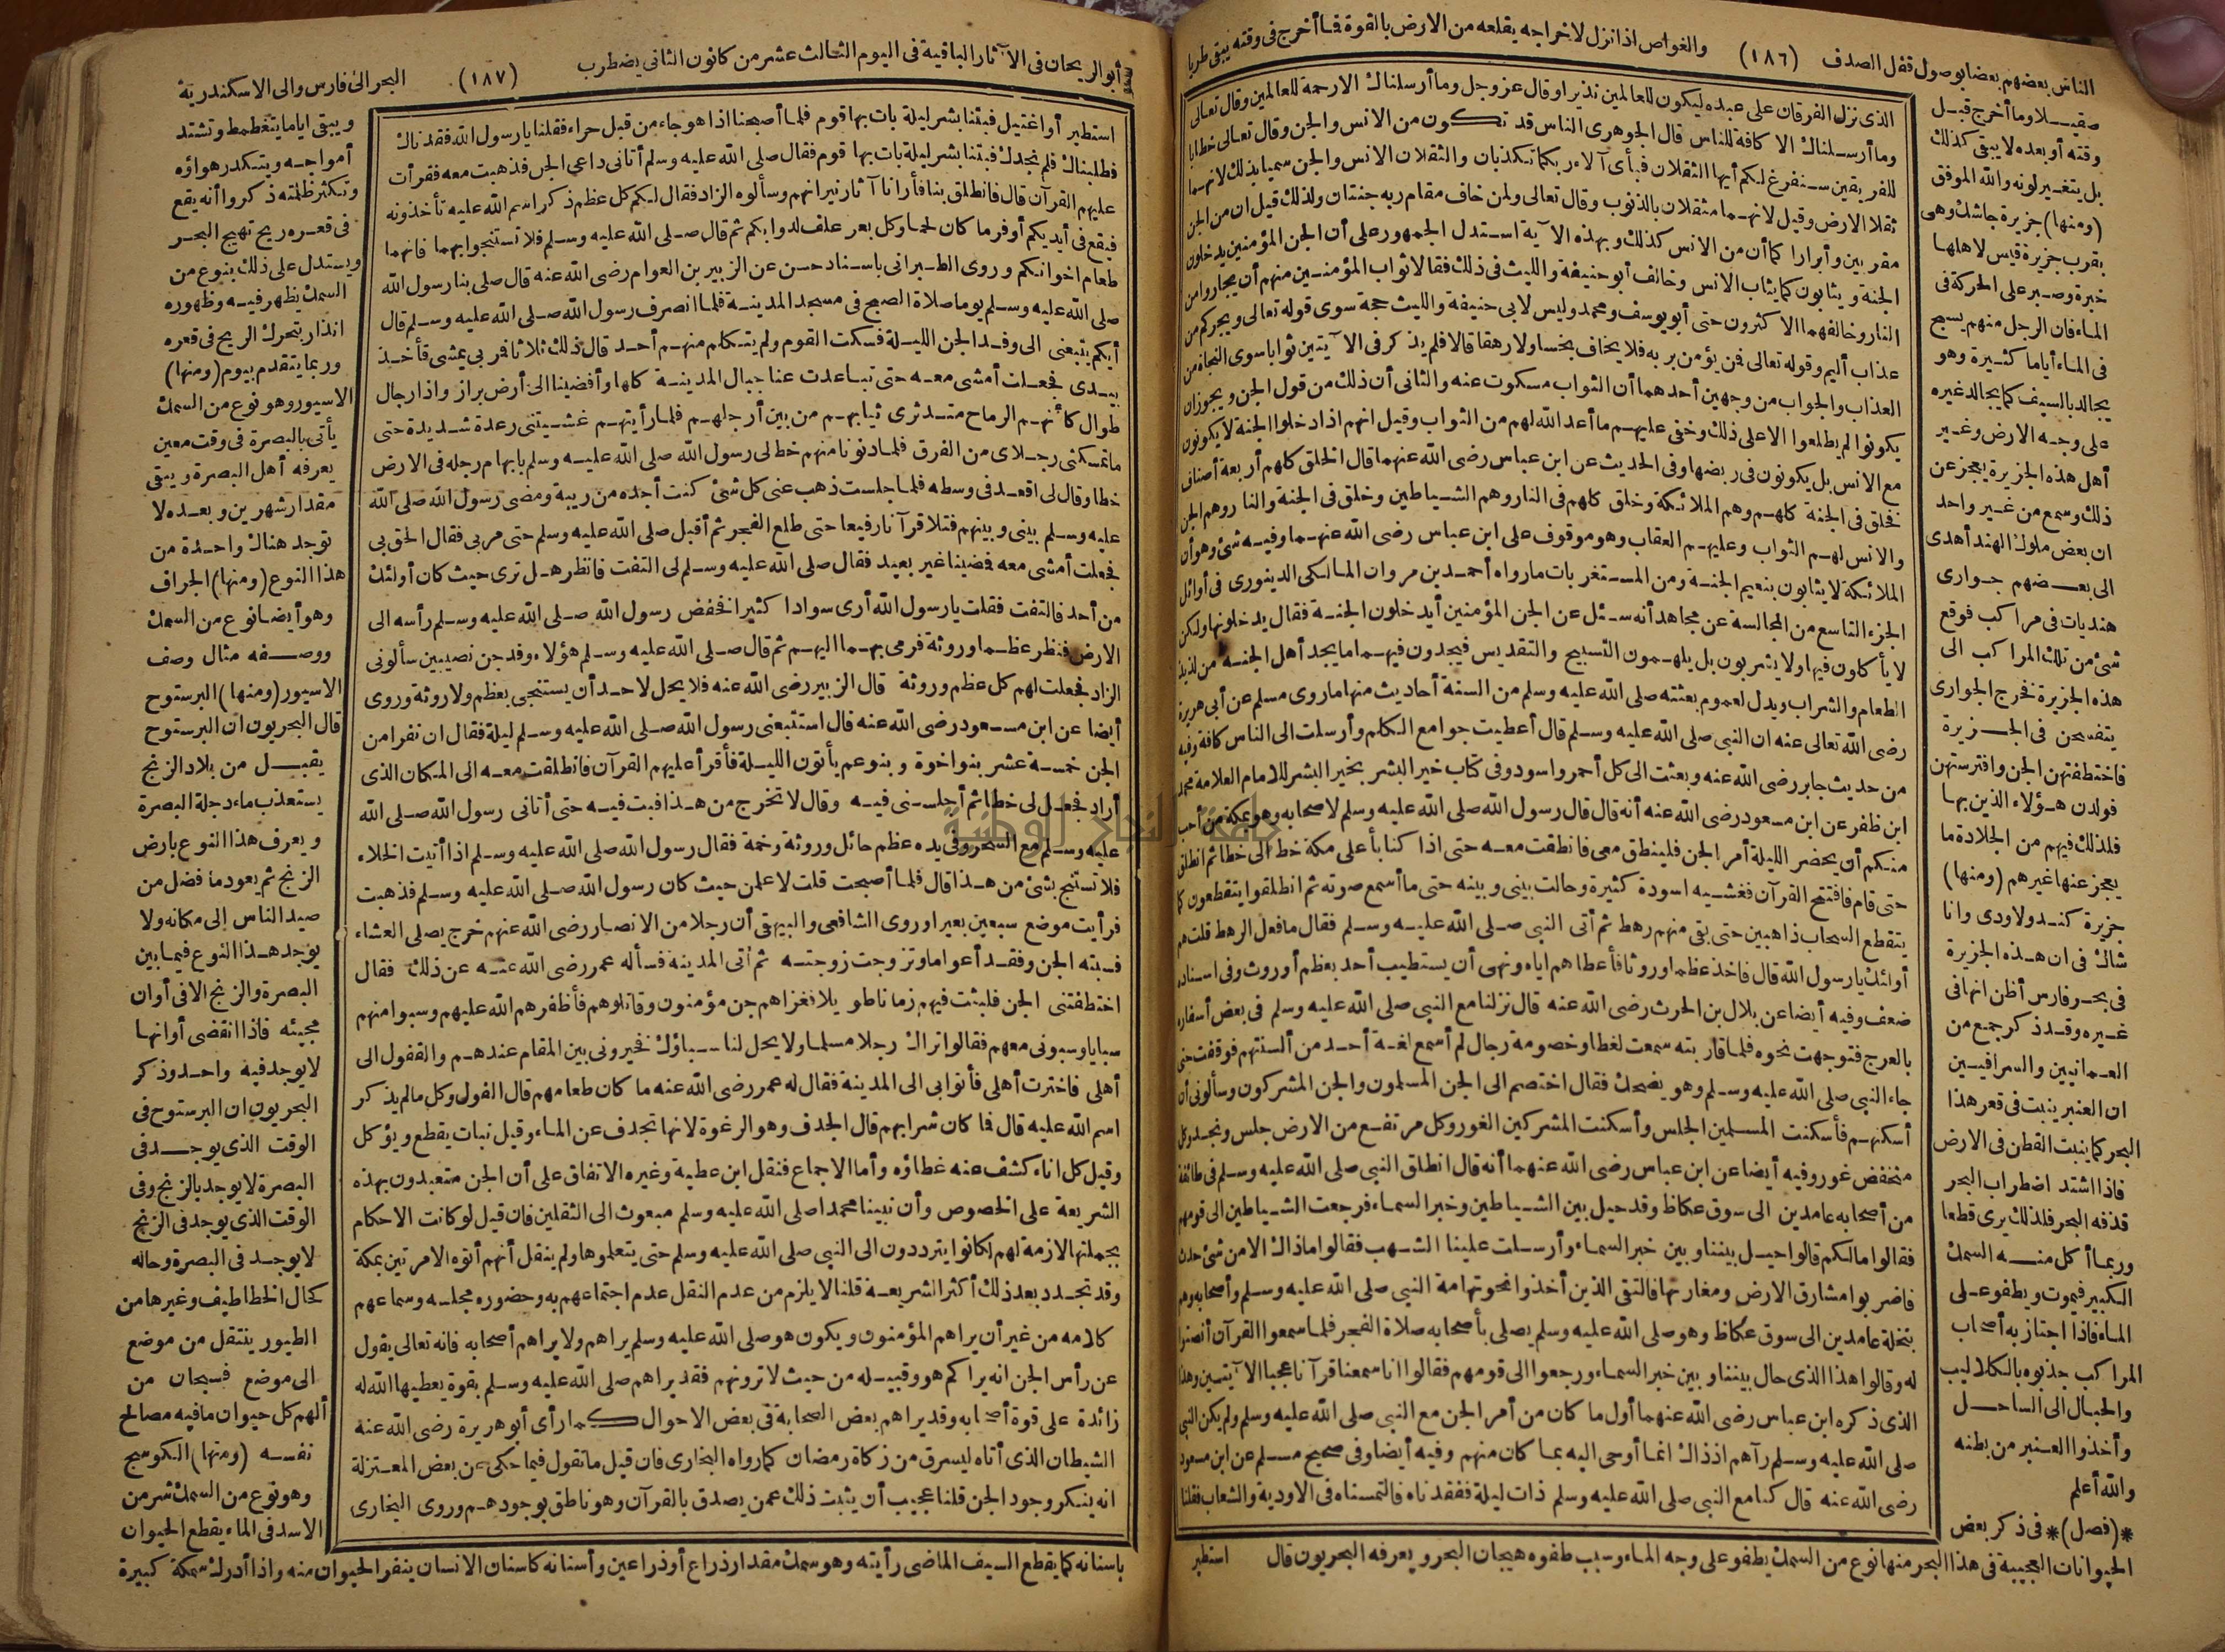 الناس بعضهم بعضا بوصول قفل الصدف (١٨٦) والغواص اذا نزل لاخراجه يقلعه من الارض بالقوة فما أخرج فى وقته يبقى طريا
صقيلا وما أخرج قبل
وقته أو بعده لا يبقى كذلك
بل يتغير لونه والله الموفق
(ومنها) جزيرة جاشك وهى
بقرب جزيرة قيس لاهلها
خبرة وصبر على الحركة فى
الماء فان الرجل منهم يسبح
فى الماء أياما كثيرة وهو
يجالد بالسيف كما يجالد غيره
على وجه الارض وغير
أهل هذه الجزيرة يعجز عن
ذلك وسمع من غير واحد
ان بعض ملوك الهند أهدى
الى بعضهم جوارى
هنديات فى مراكب فوقع
شئ من تلك المراكب الى
هذه الجزيرة فخرج الجوارى
يتفسحن فى الجزيرة
فاختطفتهن الجن وافترستهن
فولدن هؤلاء الذين بها
فلذلك فيهم من الجلادة ما
يعجز عنها غيرهم (ومنها)
جزيرة كندولاودى وانا
شاك فى ان هذه الجزيرة
فى بحر فارس أظن انها فى
غيره وقد ذكر جمع من
العمانيين والسرافيين
ان العنبر ينبت فى قعر هذا
البحر كما ينبت القطن فى الارض
فاذا اشتد اضطراب البحر
قذفه البحر فلذلك يرى قطعا
وربما أكل منه السمك
الكبير فيموت ويطفو على
الماء فاذا اجتاز به أصحاب
المراكب جذبوه بالكلاليب
والحبال الى الساحل
وأخذوا العنبر من بطنه
والله أعلم
*(فصل)* فى ذكر بعض
الحيوانات العجيبة فى هذا البحر منها نوع من السمك يطفو على وجه الماء وسبب طفوه هيجان البحر ويعرفه البحريون قال
الذى نزل الفرقان على عبده ليكون للعالمين نذيرا وقال عز وجل وما أرسلناك الا رحمة للعالمين وقال تعالى
وما أرسلناك الا كافة للناس قال الجوهرى الناس قد تكون من الانس والجن وقال تعالى خطابا
للفريقين سنفرغ لكم أيها الثقلان فبأى آلاء ربكما تكذبان والثقلان الانس والجن سميا بذلك لانهما
ثقلا الارض وقيل لانهما مثقلان بالذنوب وقال تعالى ولمن خاف مقام ربه جنتان ولذلك قيل ان من الجن
مقربين وأبرارا كما أن من الانس كذلك وبهذه الآية استدل الجمهور على أن الجن المؤمنين يدخلون
الجنة ويثابون كما يثاب الانس وخالف أبو حنيفة والليث فى ذلك فقالا ثواب المؤمنين منهم أن يجاروا من
النار وخالفهما الاكثرون حتى أبو يوسف ومحمد وليس لابى حنيفة والليث حجة سوى قوله تعالى ويجركم من
عذاب أليم وقوله تعالى فمن يؤمن بربه فلا يخاف بخسا ولا رهقا قالا فلم يذكر فى الآيتين ثوابا سوى النجاة من
العذاب والجواب من وجهين أحدهما أن الثواب مسكوت عنه والثانى أن ذلك من قول الجن ويجوز أن
يكونوا لم يطلعوا الا على ذلك وخفى عليهم ما أعد الله لهم من الثواب وقيل انهم اذا دخلوا الجنة لا يكونون
مع الانس بل يكونون فى ربضها وفى الحديث عن ابن عباس رضى الله عنهما قال الخلق كلهم أربعة أصناف
فخلق فى الجنة كلهم وهم الملائكة وخلق كلهم فى النار وهم الشياطين وخلق فى الجنة والنار وهم الجن
والانس لهم الثواب وعليهم العقاب وهو موقوف على ابن عباس رضى الله عنهما وفيه شئ وهو أن
الملائكة لا يثابون بنعيم الجنة ومن المستغربات ما رواه أحمد بن مروان المالكى الدينورى فى أوائل
الجزء التاسع من المجالسة عن مجاهد أنه سئل عن الجن المؤمنين أيدخلون الجنة فقال يدخلونها ولكن
لا يأكلون فيها ولا يشربون بل يلهمون التسبيح والتقديس فيجدون فيهما ما يجد أهل الجنة من لذيذ
الطعام والشراب ويدل لعموم بعثته صلى الله عليه وسلم من السنة أحاديث منها ما روى مسلم عن أبى هريرة
رضى الله تعالى عنه ان النبى صلى الله عليه وسلم قال أعطيت جوامع الكلم وأرسلت الى الناس كافة وفيه
من حديث جابر رضى الله عنه وبعثت الى كل أحمر واسود وفى كتاب خير البشر بخير البشر للامام العلامة محمد
ابن ظفر عن ابن مسعود رضى الله عنه أنه قال قال رسول الله صلى الله عليه وسلم لاصحابه وهو بمكة من أحب
منكم أن يحضر الليلة أمر الجن فلينطلق معى فانطلقت معه حتى اذا كنا بأعلى مكة خط الى خطا ثم انطلق
حتى قام فافتتح القرآن فغشيه اسودة كثيرة وحالت بينى وبينه حتى ما أسمع صوته ثم انطلقوا يتقطعون كما
يتقطع السحاب ذاهبين حتى بقى منهم رهط ثم أتى النبى صلى الله عليه وسلم فقال ما فعل الرهط قلت هم
أولئك يا رسول الله قال فاخذ عظما وروثا فأعطاهم اياه ونهى أن يستطيب أحد بعظم أو روث وفى اسناده
ضعف وفيه أيضا عن بلال بن الحرث رضى الله عنه قال نزلنا مع النبى صلى الله عليه وسلم فى بعض أسفاره
بالعرج فتوجهت نحوه فلما قاربته سمعت لغطا وخصومة رجال لم أسمع لغة أحد من ألسنتهم فوقفت حتى
جاء النبى صلى الله عليه وسلم وهو يضحك فقال اختصم الى الجن المسلمون والجن المشركون وسألونى أن
أسكنهم فأسكنت المسلمين الجلس وأسكنت المشركين الغور وكل مرتفع من الارض جلس ونجد وكل
منخفض غور وفيه أيضا عن ابن عباس رضى الله عنهما أنه قال انطلق النبى صلى الله عليه وسلم فى طائفة
من أصحابه عامدين الى سوق عكاظ وقد حيل بين الشياطين وخبر السماء فرجعت الشياطين الى قومهم
فقالوا ما لكم قالوا حيل بيننا وبين خبر السماء وأرسلت علينا الشهب فقالوا ما ذاك الا من شئ حدث
فاضربوا مشارق الارض ومغاربها فالتقى الذين أخذوا نحو تهامة النبى صلى الله عليه وسلم وأصحابه وهم
بنخلة عامدين الى سوق عكاظ وهو صلى الله عليه وسلم يصلى بأصحابه صلاة الفجر فلما سمعوا القرآن أنصتوا
له وقالوا هذا الذى حال بيننا وبين خبر السماء ورجعوا الى قومهم فقالوا انا سمعنا قرآنا عجبا الآيتين وهذا
الذى ذكره ابن عباس رضى الله عنهما أول ما كان من أمر الجن مع النبى صلى الله عليه وسلم ولم يكن النبى
صلى الله عليه وسلم رآهم اذ ذاك انما أوحى اليه بما كان منهم وفيه أيضا وفى صحيح مسلم عن ابن مسعود
رضى الله عنه قال كنا مع النبى صلى الله عليه وسلم ذات ليلة ففقدناه فالتمسناه فى الاودية والشعاب فقلنا
استطير
أبو الريحان فى الآثار الباقية فى اليوم الثالث عشر من كانون الثانى يضطرب (١٨٧) البحر الى فارس والى الاسكندرية
استطير أو اغتيل فبتنا بشر ليلة بات بها قوم فلما أصبحنا اذا هو جاء من قبل حراء فقلنا يا رسول الله فقدناك
فطلبناك فلم نجدك فبتنا بشر ليلة بات بها قوم فقال صلى الله عليه وسلم أتانى داعى الجن فذهبت معه فقرأت
عليهم القرآن قال فانطلق بنا فأرانا آثار نيرانهم وسألوه الزاد فقال لكم كل عظم ذكر اسم الله عليه تأخذونه
فيقع فى أيديكم أوفر ما كان لحما وكل بعر علف لدوابكم ثم قال صلى الله عليه وسلم فلا تستنجوا بهما فانهما
طعام اخوانكم وروى الطبرانى باسناد حسن عن الزبير بن العوام رضى الله عنه قال صلى بنا رسول الله
صلى الله عليه وسلم يوما صلاة الصبح فى مسجد المدينة فلما انصرف رسول الله صلى الله عليه وسلم قال
أيكم يتبعنى الى وفد الجن الليلة فسكت القوم ولم يتكلم منهم أحد قال ذلك ثلاثا فمر بى يمشى فأخذ
بيدى فجعلت أمشى معه حتى تباعدت عنا جبال المدينة كلها وأفضينا الى أرض براز واذا رجال
طوال كأنهم الرماح متدثرى ثيابهم من بين أرجلهم فلما رأيتهم غشيتنى رعدة شديدة حتى
ما تمسكنى رجلاى من الفرق فلما دنونا منهم خط لى رسول الله صلى الله عليه وسلم بابهام رجله فى الارض
خطا وقال لى اقعد فى وسطه فلما جلست ذهب عنى كل شئ كنت أجده من ريبة ومضى رسول الله صلى الله
عليه وسلم بينى وبينهم فتلا قرآنا رفيعا حتى طلع الفجر ثم أقبل صلى الله عليه وسلم حتى مر بى فقال الحق بى
فجعلت أمشى معه فمضينا غير بعيد فقال صلى الله عليه وسلم لى التفت فانظر هل ترى حيث كان أولئك
من أحد فالتفت فقلت يا رسول الله أرى سوادا كثيرا فخفض رسول الله صلى الله عليه وسلم رأسه الى
الارض فنظر عظما وروثة فرمى بهما اليهم ثم قال صلى الله عليه وسلم هؤلاء وفد جن نصيبين سألونى
الزاد فجعلت لهم كل عظم وروثة قال الزبير رضى الله عنه فلا يحل لاحد أن يستنجى بعظم ولا روثة وروى
أيضا عن ابن مسعود رضى الله عنه قال استتبعنى رسول الله صلى الله عليه وسلم ليلة فقال ان نفرا من
الجن خمسة عشر بنو اخوة وبنو عم يأتون الليلة فأقرأ عليهم القرآن فانطلقت معه الى المكان الذى
أراد فجعل لى خطا ثم أجلسنى فيه وقال لا تخرج من هذا فبت فيه حتى أتانى رسول الله صلى الله
عليه وسلم مع السحر وفى يده عظم حائل وروثة وحمة فقال رسول الله صلى الله عليه وسلم اذا أتيت الخلاء
فلا تستنج بشئ من هذا قال فلما أصبحت قلت لاعلمن حيث كان رسول الله صلى الله عليه وسلم فذهبت
فرأيت موضع سبعين بعيرا وروى الشافعى والبيهقى أن رجلا من الانصار رضى الله عنهم خرج يصلى العشاء
فسبته الجن وفقد أعواما وتزوجت زوجته ثم أتى المدينة فسأله عمر رضى الله عنه عن ذلك فقال
اختطفتنى الجن فلبثت فيهم زمانا طويلا فغزاهم جن مؤمنون وقاتلوهم فأظفرهم الله عليهم وسبوا منهم
سبايا وسبونى معهم فقالوا نراك رجلا مسلما ولا يحل لنا سباؤك فخيرونى بين المقام عندهم والقفول الى
أهلى فاخترت أهلى فأتوا بى الى المدينة فقال له عمر رضى الله عنه ما كان طعامهم قال الفول وكل ما لم يذكر
اسم الله عليه قال فما كان شرابهم قال الجدف وهو الرغوة لانها تجدف عن الماء وقيل نبات يقطع ويؤكل
وقيل كل اناء كشف عنه غطاؤه وأما الاجماع فنقل ابن عطية وغيره الاتفاق على أن الجن متعبدون بهذه
الشريعة على الخصوص وأن نبينا محمدا صلى الله عليه وسلم مبعوث الى الثقلين فان قيل لو كانت الاحكام
بجملتها لازمة لهم لكانوا يترددون الى النبى صلى الله عليه وسلم حتى يتعلموها ولم ينقل أنهم أتوه الا مرتين بمكة
وقد تجدد بعد ذلك أكثر الشريعة قلنا لا يلزم من عدم النقل عدم اجتماعهم به وحضوره مجلسه وسماعهم
كلامه من غير أن يراهم المؤمنون ويكون هو صلى الله عليه وسلم يراهم ولا يراهم أصحابه فانه تعالى يقول
عن رأس الجن انه يراكم هو وقبيله من حيث لا ترونهم فقد يراهم صلى الله عليه وسلم بقوة يعطيها الله له
زائدة على قوة أصحابه وقد يراهم بعض الصحابة فى بعض الاحوال كما رأى أبو هريرة رضى الله عنه
الشيطان الذى أتاه ليسرق من زكاة رمضان كما رواه البخارى فان قيل ما تقول فيما حكى عن بعض المعتزلة
انه ينكر وجود الجن قلنا عجيب أن يثبت ذلك عمن يصدق بالقرآن وهو ناطق بوجودهم وروى البخارى
ويبقى اياما يتغطمط وتشتد
أمواجه ويتكدر هواؤه
وتكثر ظلمته ذكروا أنه يقع
فى قعره ريح تهيج البحر
ويستدل على ذلك بنوع من
السمك يظهر فيه وظهوره
انذار بتحرك الريح فى قعره
وربما يتقدم بيوم (ومنها)
الاسيور وهو نوع من السمك
يأتى بالبصرة فى وقت معين
يعرفه أهل البصرة ويبقى
مقدار شهرين وبعده لا
توجد هناك واحدة من
هذا النوع (ومنها) الجراف
وهو أيضا نوع من السمك
ووصفه مثال وصف
الاسيور (ومنها) البرستوح
قال البحريون ان البرستوح
يقبل من بلاد الزنج
يستعذب ماء دجلة البصرة
ويعرف هذا النوع بارض
الزنج ثم يعود ما فضل من
صيد الناس إلى مكانه ولا
يوجد هذا النوع فيما بين
البصرة والزنج الا فى أوان
مجيئه فاذا انقضى أوانها
لا يوجد فيه واحد وذكر
البحريون ان البرستوح فى
الوقت الذى يوجد فى
البصرة لا يوجد بالزنج وفى
الوقت الذى يوجد فى الزنج
لا يوجد فى البصرة وحاله
كحال الخطاطيف وغيرها من
الطيور ينتقل من موضع
الى موضع فسبحان من
ألهم كل حيوان ما فيه مصالح
نفسه (ومنها) الكوسج
وهو نوع من السمك شر من
الاسد فى الماء يقطع الحيوان
باسنانه كما يقطع السيف الماضى رأيته وهو سمك مقدار ذراع أو ذراعين وأسنانه كاسنان الانسان ينفر الحيوان منه واذا أدرك سمكة كبيرة
جامعة النجاح الوطنية